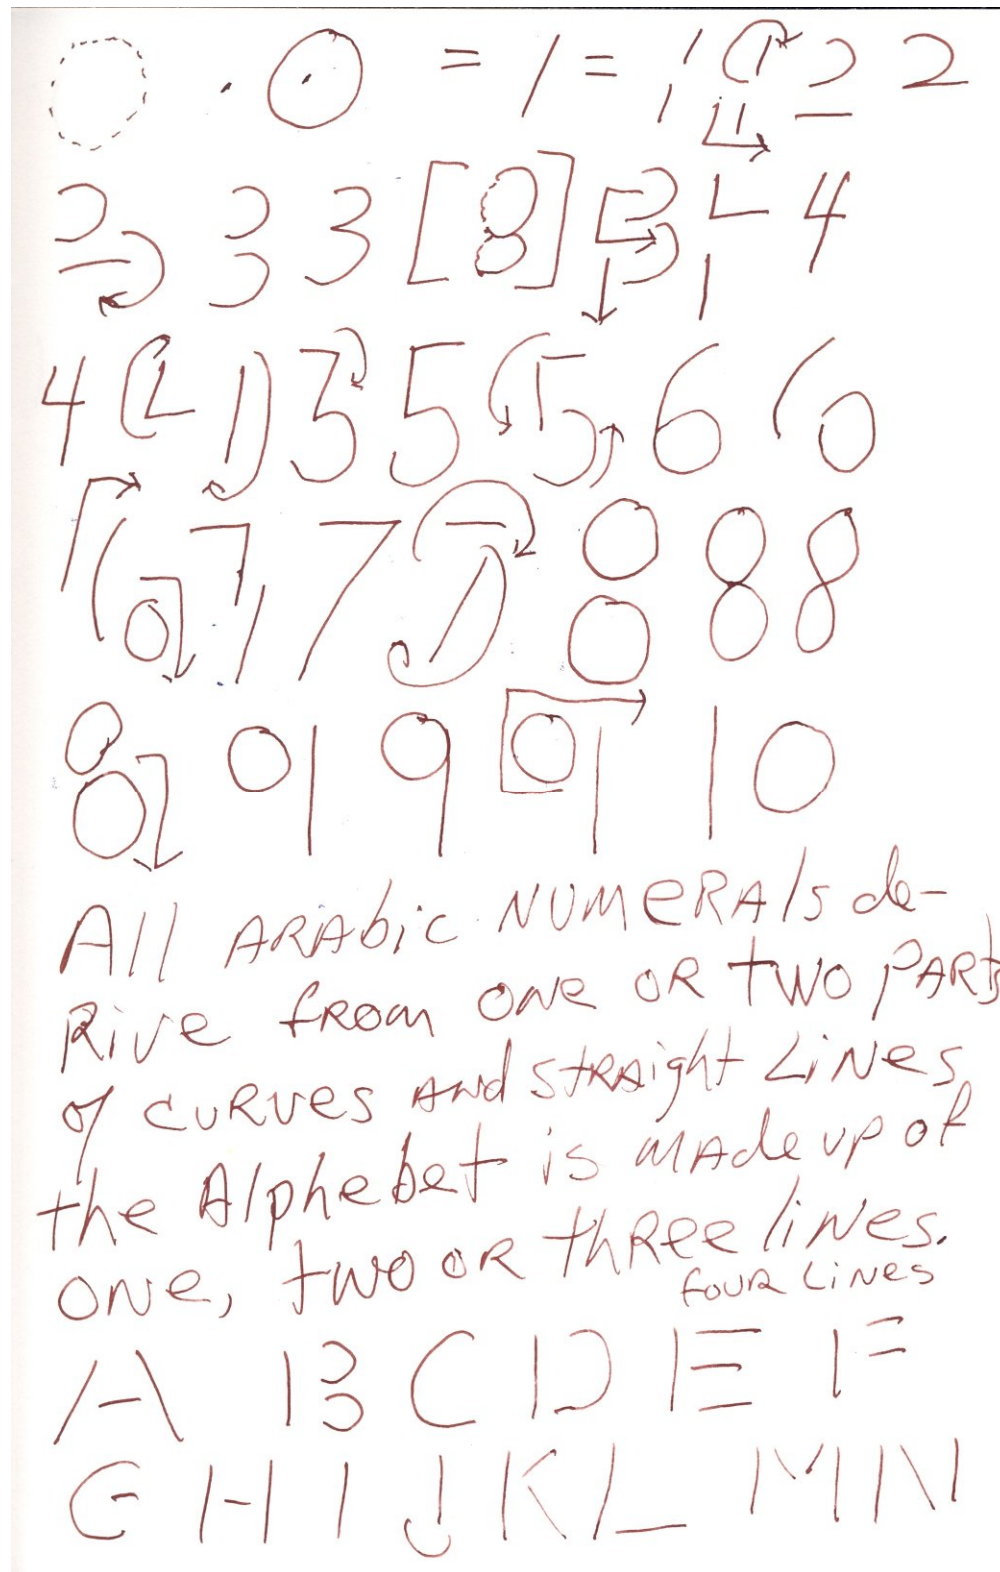 . 0 = 1 = 1 1 2 2
3 3 [8] 3 4 4
4 4 1 3 5 5 6 6
6 7 7 7 8 8 8
8 9 9 9 1 0
All ARAbic NUMERAls de-
Rive from ONe OR two PARts
of cURVes ANd stRAight LiNes
the Alphebet is MAde up of
ONe, two OR thRee liNes.
fouR LiNes
A B C D E F
G H I J K L M N